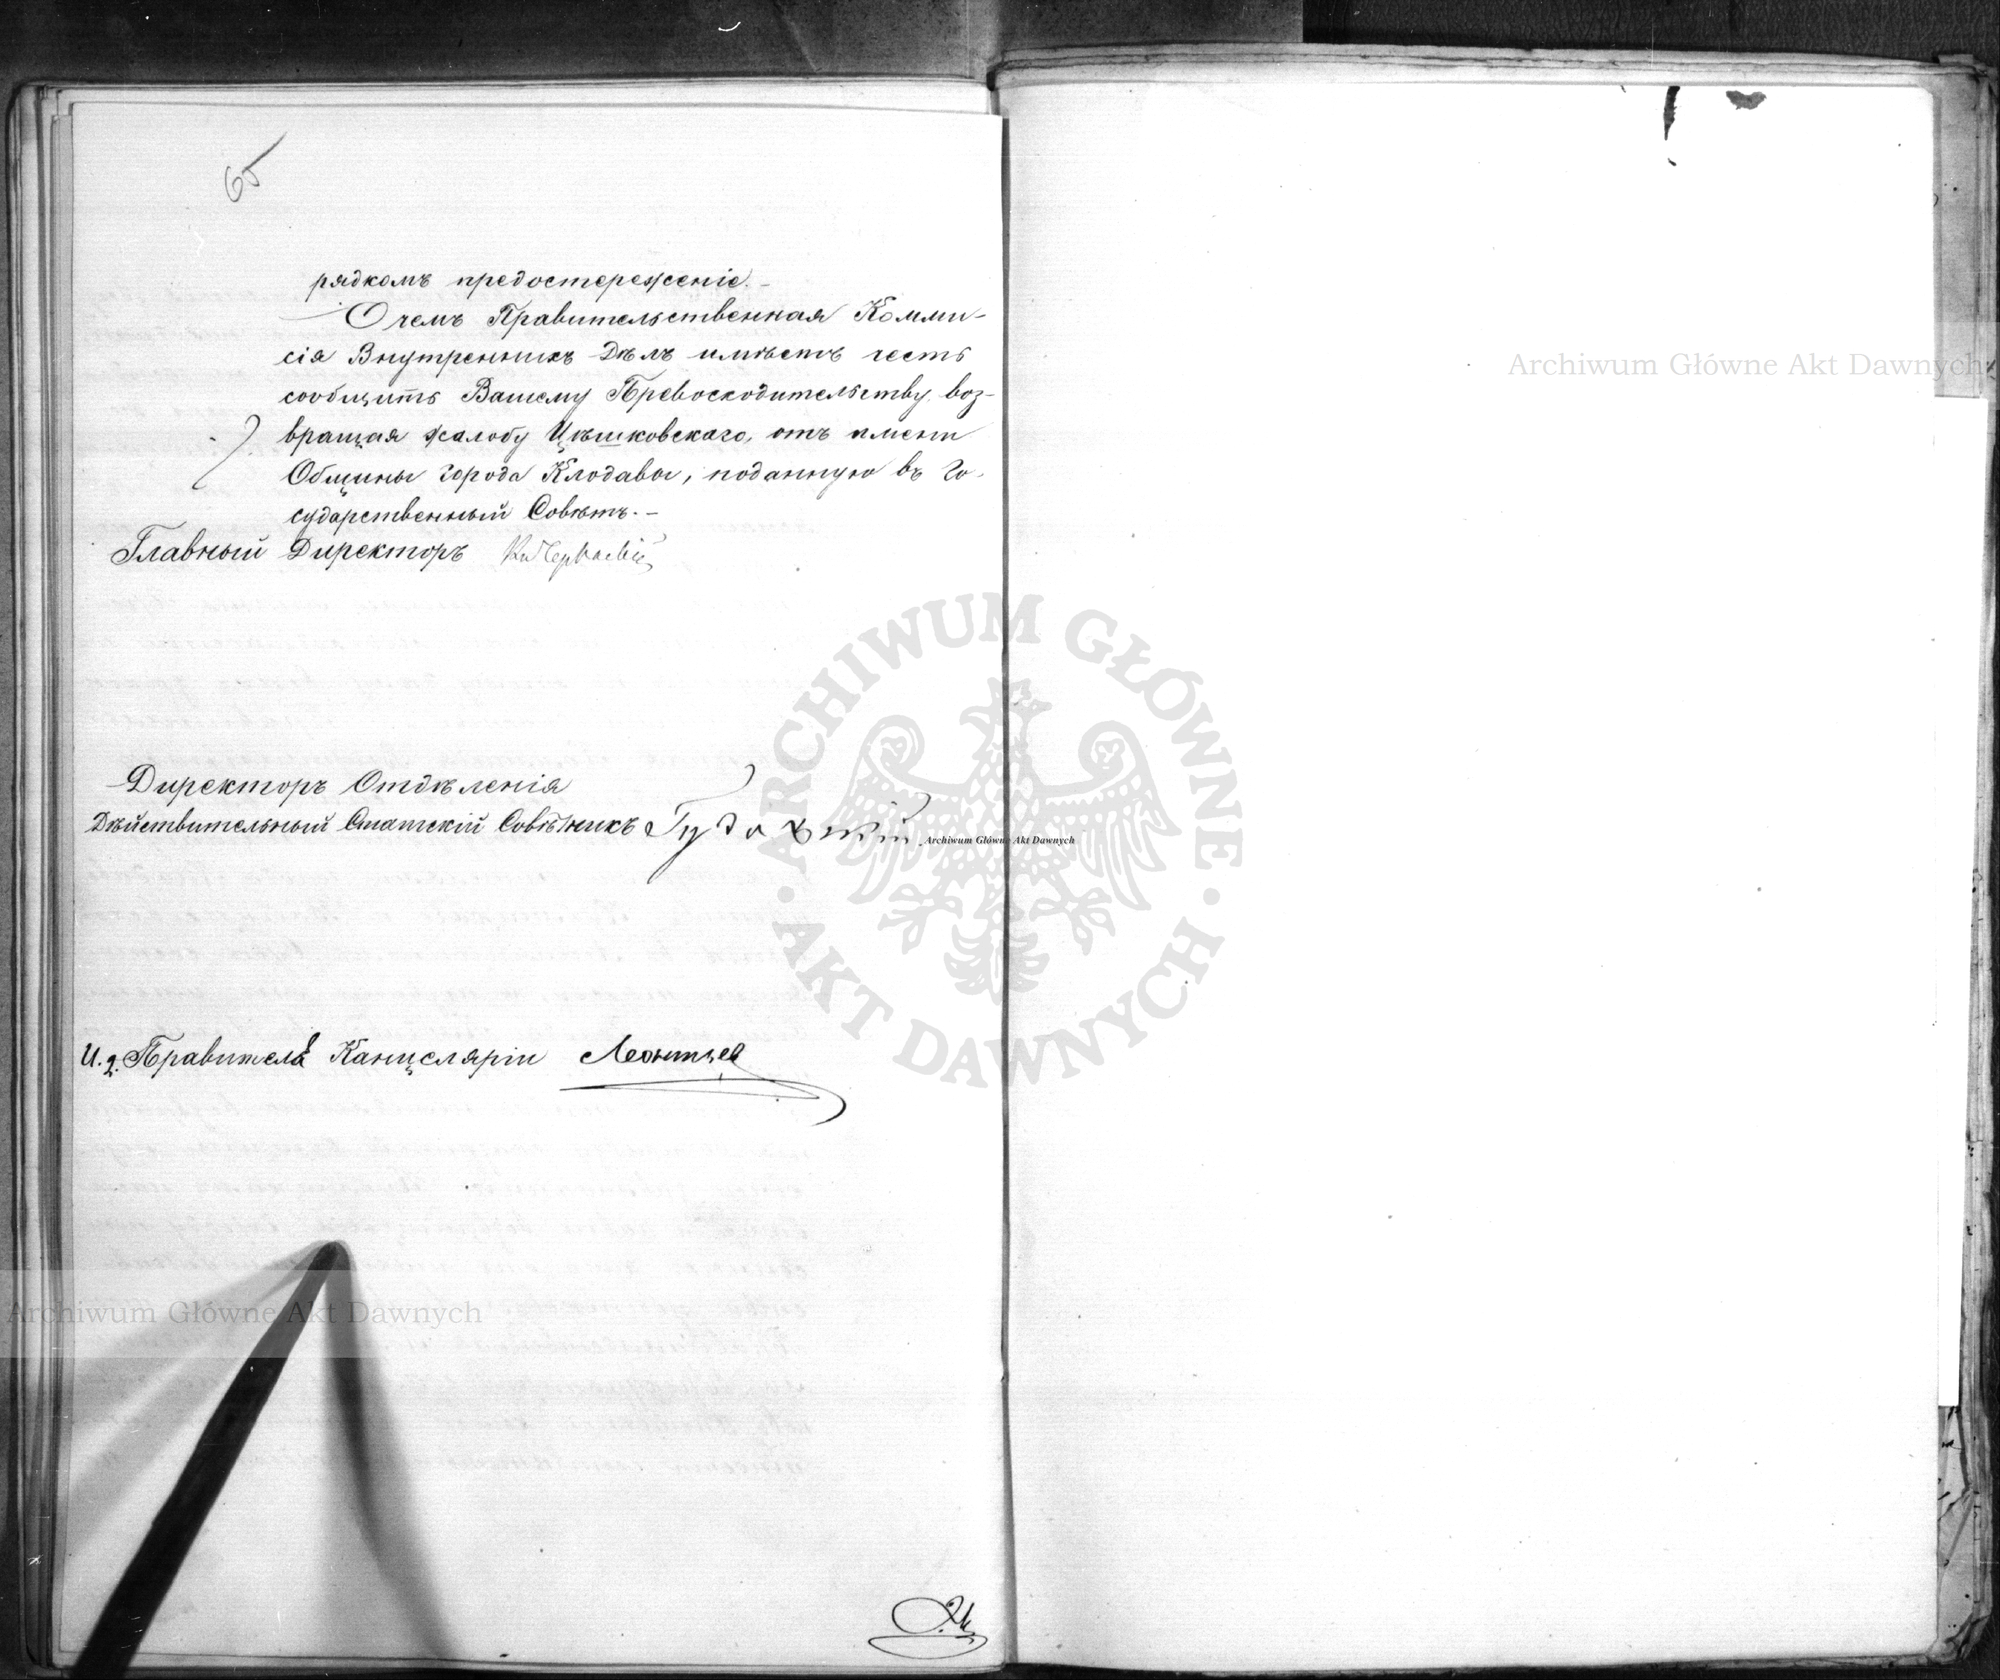 65
рядкомъ предостереженіе. –
О чемъ Правительственная Комми-
сія Внутреннихъ Дѣлъ имѣетъ честь
сообщить Вашему Превосходительству, воз-
вращая жалобу Цѣшковскаго, отъ имени
Общины города Клодавы, поданную въ Го-
сударственный Совѣтъ. –
Главный Директоръ
Директоръ Отдѣленія
Дѣйствительный Статскій Совѣтникъ
И. д. Правителя Канцеляріи Леонтьев
Archiwum Główne Akt Dawnych
ARCHIWUM GŁÓWNE · AKT DAWNYCH ·
Archiwum Główne Akt Dawnych
Archiwum Główne Akt Dawnych